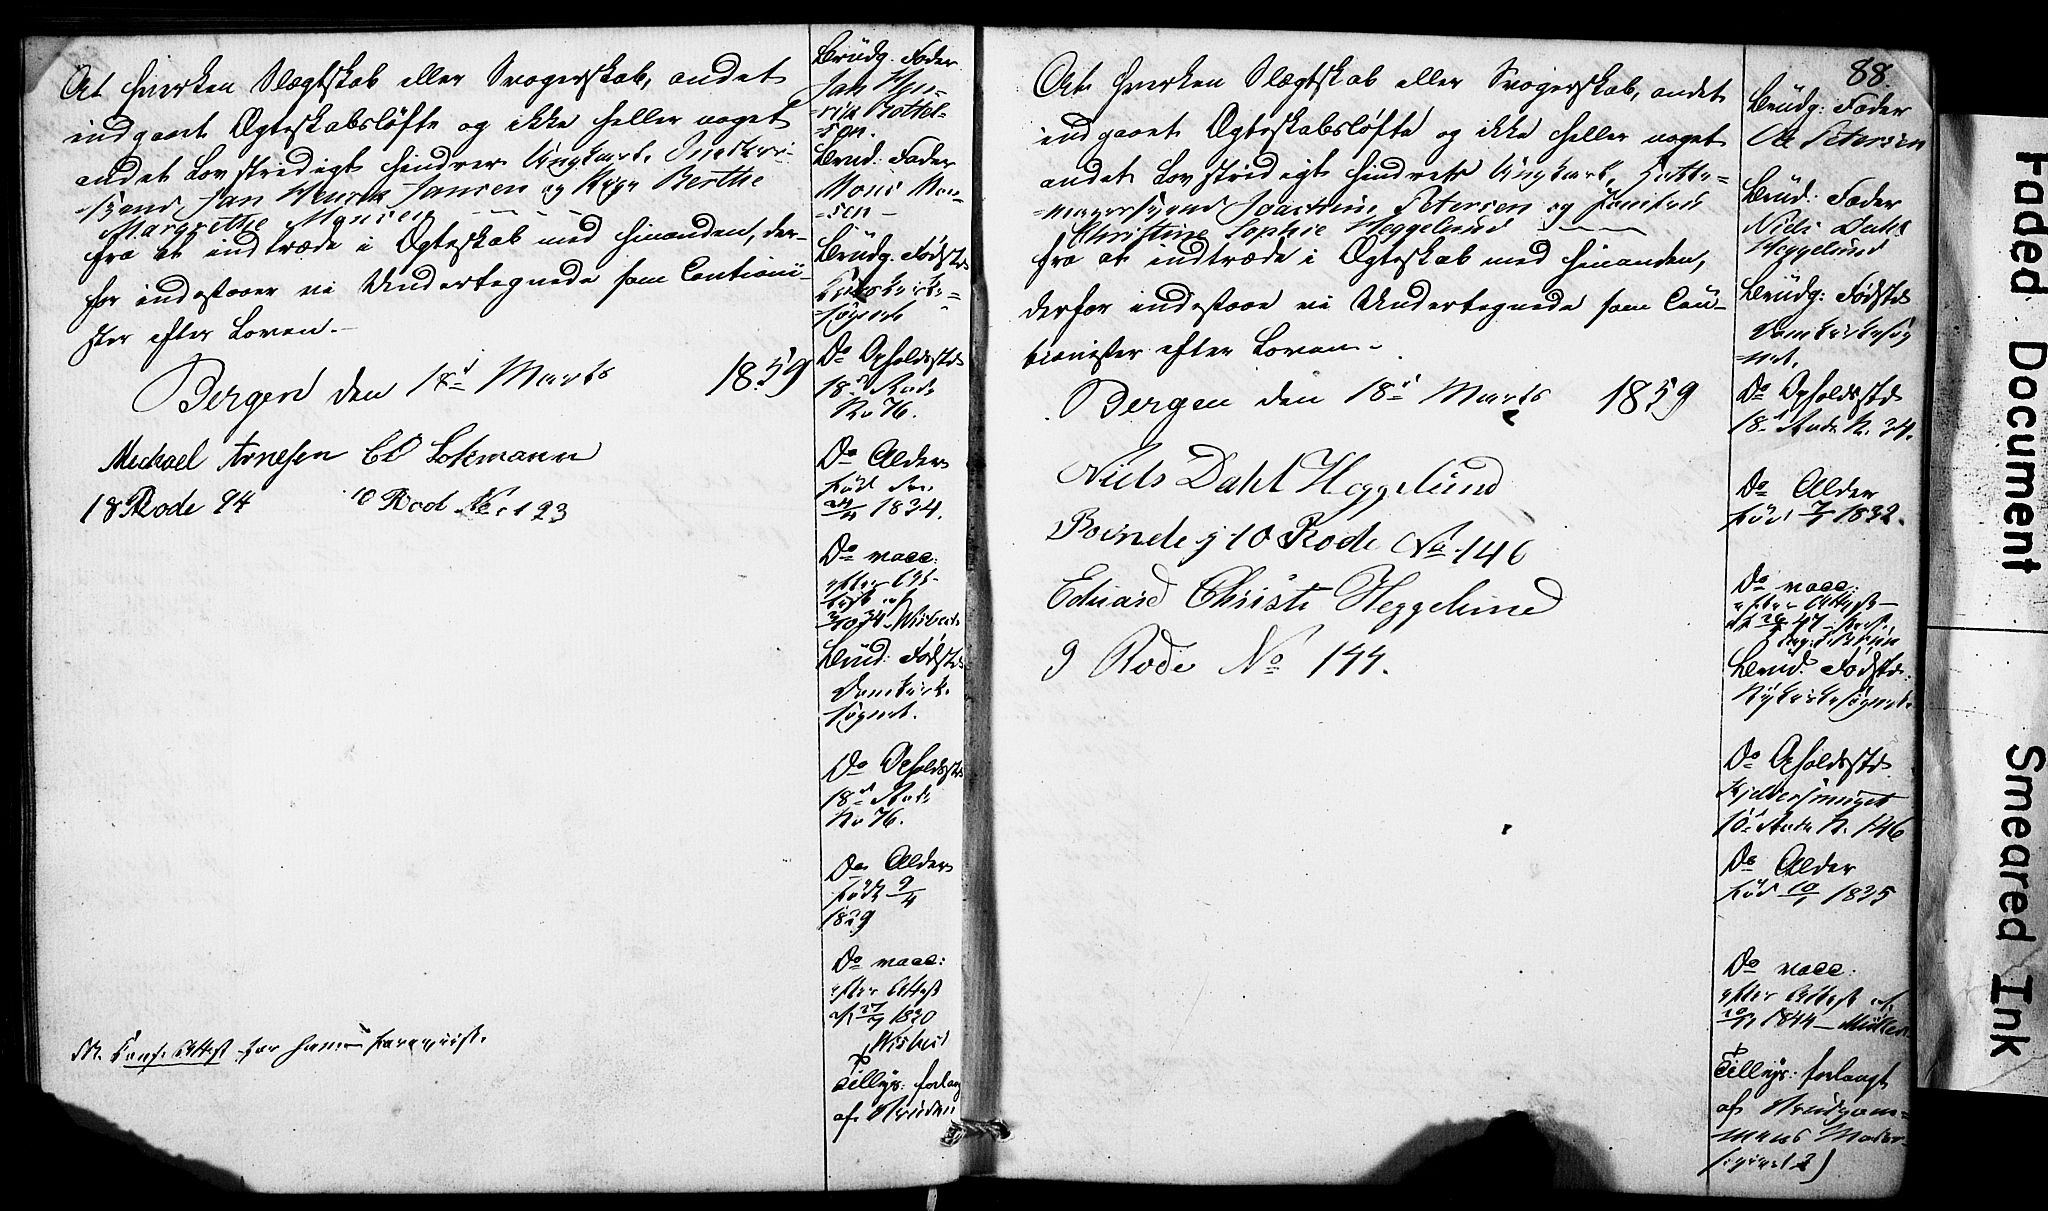 At hverken Slægtskab eller Svogerskab, andet
indgaaet Ægteskabsløfte og ikke heller noget
andet Lovstridigt hindrer Ungkarl
Jan Henrik Jansen og Pige Berthe
Margrethe Monsen
fra at indtræde i Ægteskab med hinanden, der-
for indestaaer vi Undertegnede som Cautioni-
ster efter Loven.-
Bergen den 18d Marts 1859
Michael Arnesen
18 Rode 94 10 Rod No 123
M. Conf. Attest for ham
Brudg. Fader
Jan Hen-
rik Bottel-
sen.
Brud: Fader
Mons Mon-
sen
Brudg. Fødstd
sognet
Do Opholdsstd
18d Rode
No 76.
Do Alder
Född
24/11 1834.
Do vacc:
efter At-
test af
Brud: Fødstd
Domkirke
sognet.
Do Opholdsstd
18d Rode
No 76.
Do Alder
Född 9/4
1829
Do vacc:
efter Attest
af 27/7 1830
Tillys: forlang
af Bruden
88.
At hverken Slægtskab eller Svogerskab, andet
indgaaet Ægteskabsløfte og ikke heller noget
andet Lovstridigt hindrer Ungkarl, Hatte-
magersvend Joachim Petersen og
Christine Sophie Heggelund
fra at indtræde i Ægteskab med hinanden,
derfor indestaae vi Undertegnede som Cau-
tionister efter Loven.-
Bergen den 18d Marts 1859
Niels Dahl Heggelund
Boende i 10 Rode No 146
Eduard Christi Heggelund
9 Rode No 144.
Brudg: Fader
Ole Petersen
Brud: Fader
Niels Dahl
Heggelund
Brudg: Fødstd
Domkirkesog
net,
Do Opholdsstd
18d Rode N. 34.
Do Alder
Född 7/7 1832.
Do vacc:
efter Attest
Brud: Fødstd:
Nykirkesognet
Do Opholdsstd
10d Rode N. 146
Do Alder
Född 10/1 1835
Do vacc:
efter Attest af
1844
Tillys: forlangt
af Brudgom-
mens Moder